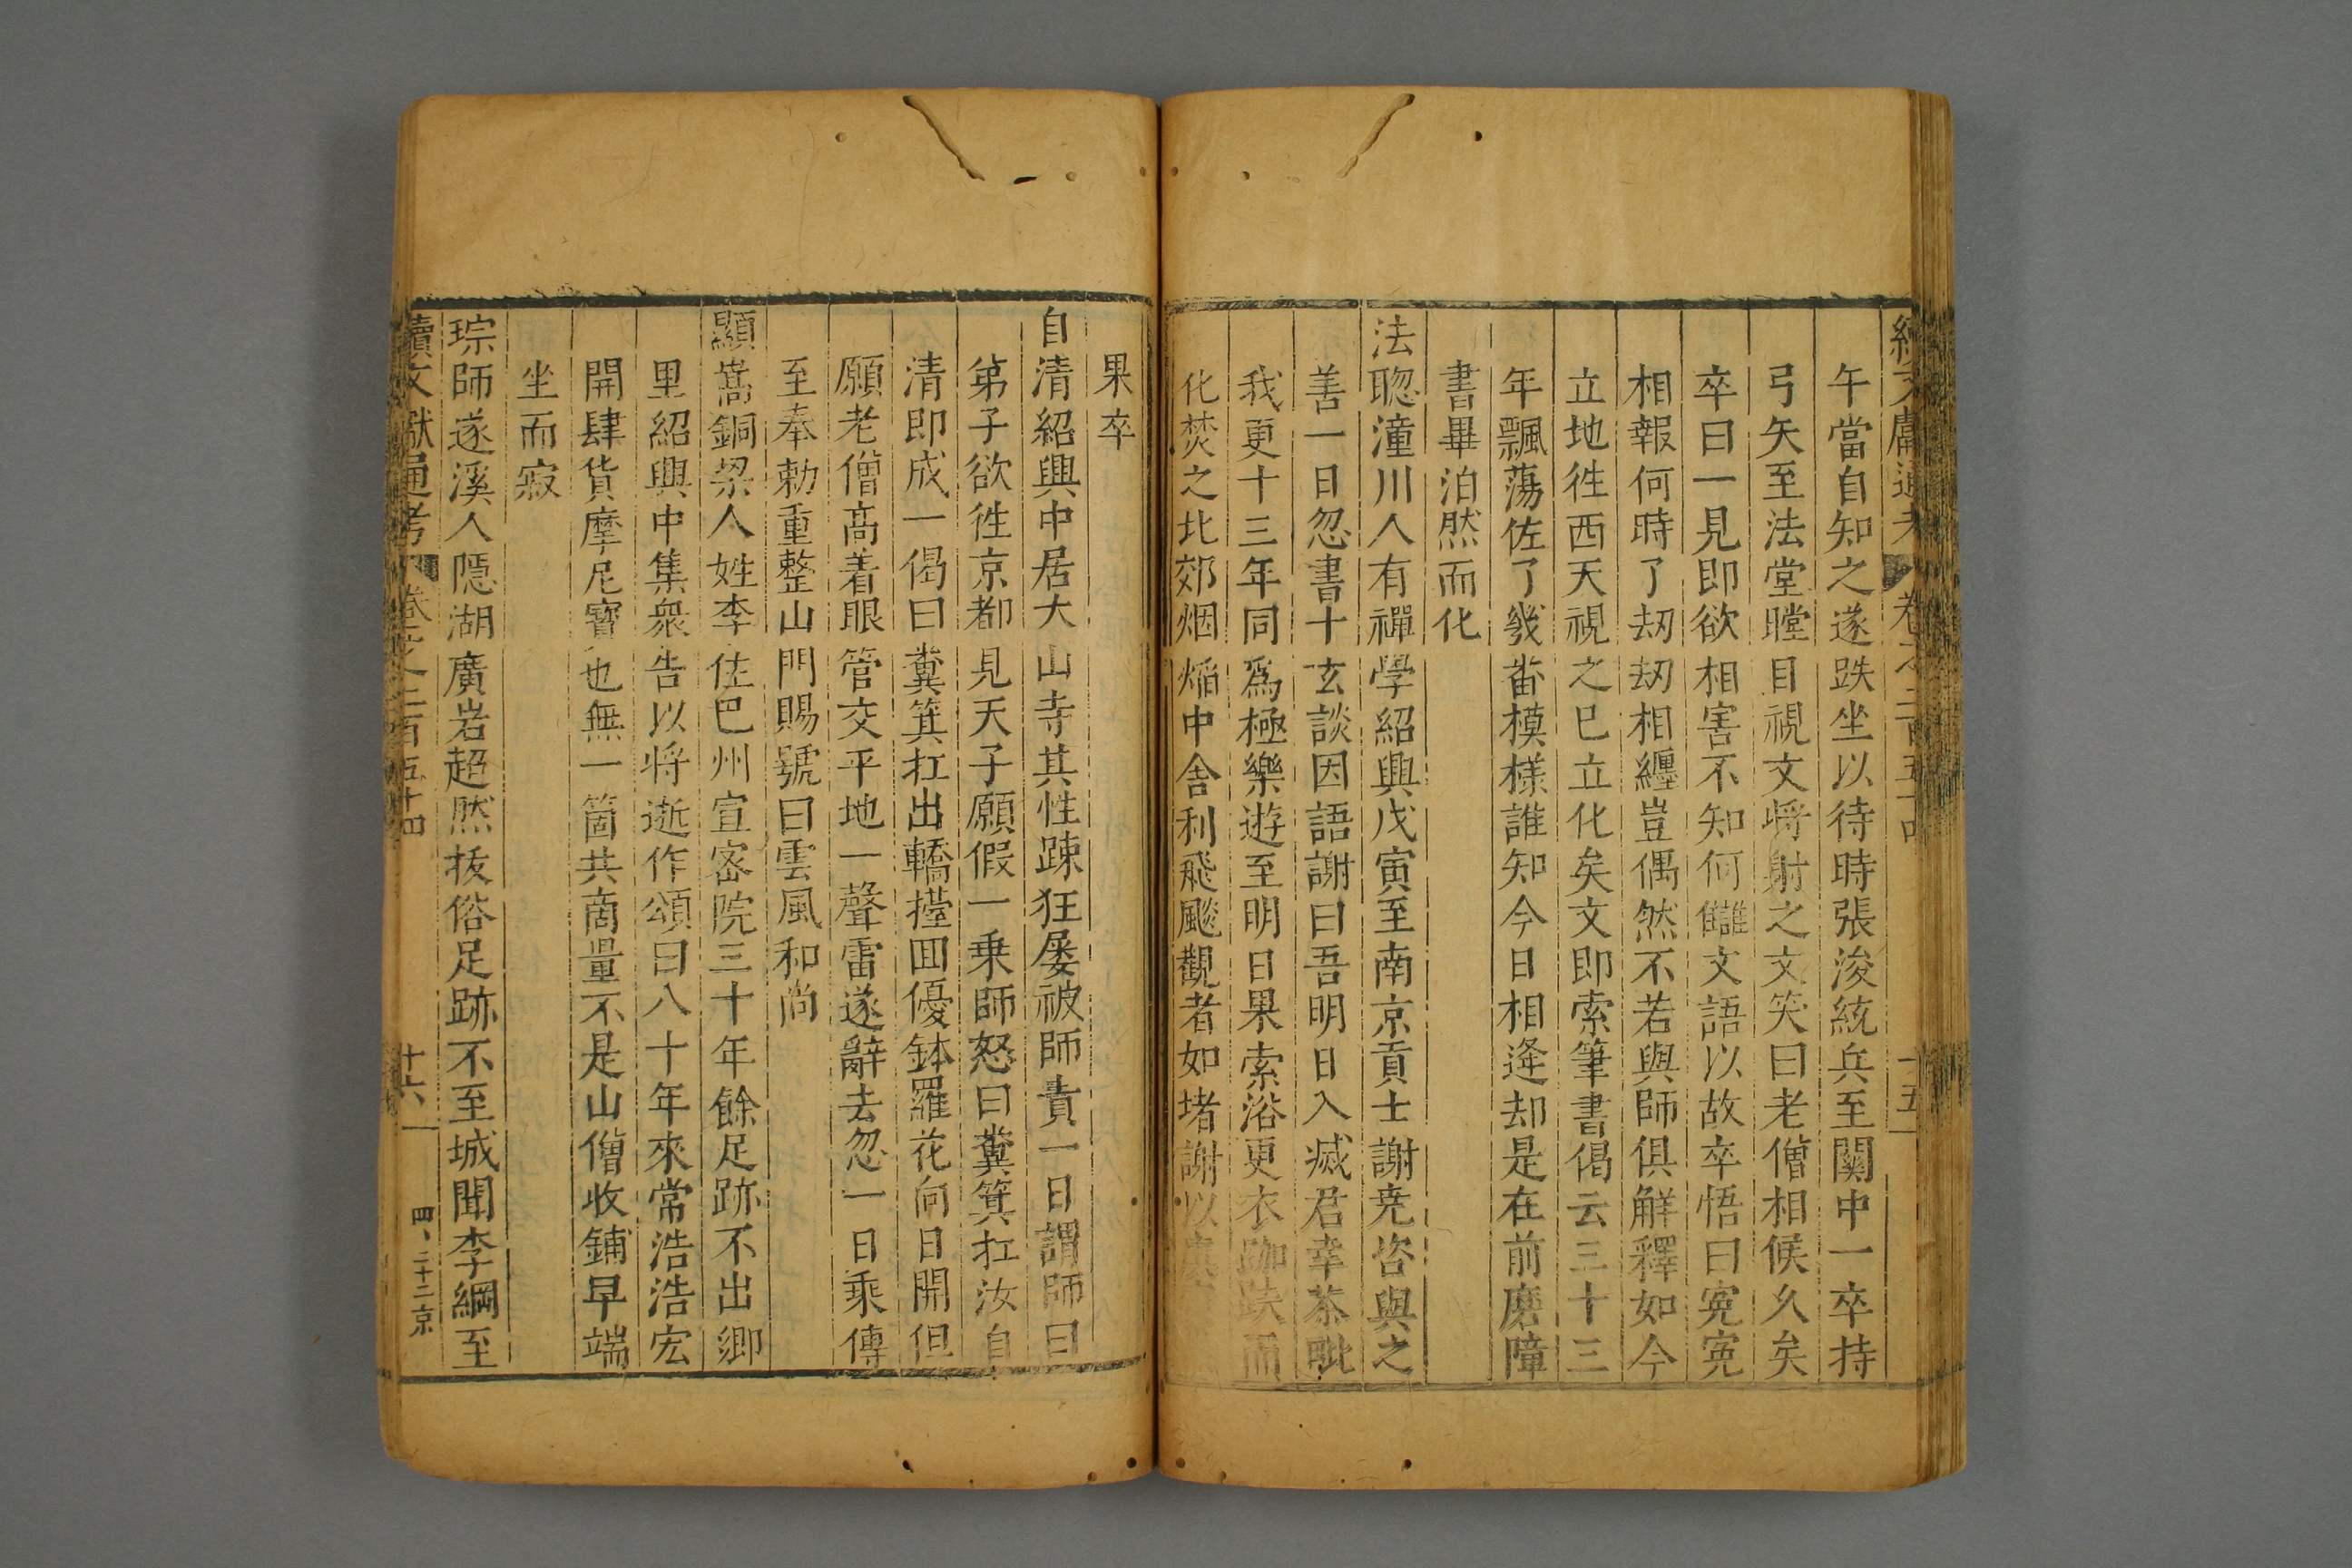 續文獻通考 卷之二百五十四 十五
午當自知之遂趺坐以待時張浚統兵至關中一卒持
弓矢至法堂瞠目視文將射之文笑曰老僧相候久矣
卒曰一見即欲相害不知何讎文語以故卒悟曰冤冤
相報何時了刼刼相纏豈偶然不若與師俱解釋如今
立地徃西天視之已立化矣文即索筆書偈云三十三
年飄蕩佐了幾畨模樣誰知今日相逢却是在前磨障
書畢泊然而化
法聦潼川人有禪學紹興戊寅至南京貢士謝尭咨與之
善一日忽書十玄談因語謝曰吾明日入滅君幸茶毗
我更十三年同爲極樂遊至明日果索浴更衣跏趺而
化焚之北郊烟焔中舍利飛颷觀者如堵謝以
果卒
自清紹興中居大山寺其性踈狂屡被師責一日謂師曰
弟子欲徃京都見天子願假一乗師怒曰糞箕扛汝自
清即成一偈曰糞箕扛出轎擡囬優鉢羅花向日開但
願老僧髙着眼管交平地一聲雷遂辭去忽一日乘傳
至奉勅重整山門賜號曰雲風和尚
顯嵩銅梁人姓李住巴州宣宻院三十年餘足跡不出鄉
里紹興中集衆告以将逝作頌曰八十年來常浩浩宏
開肆貨摩尼寳也無一箇共商量不是山僧收鋪早端
坐而寂
琮師遂溪人隠湖廣岩超然抜俗足跡不至城聞李綱至
續文獻通考 卷之二百五十四 十六 四、二十二京